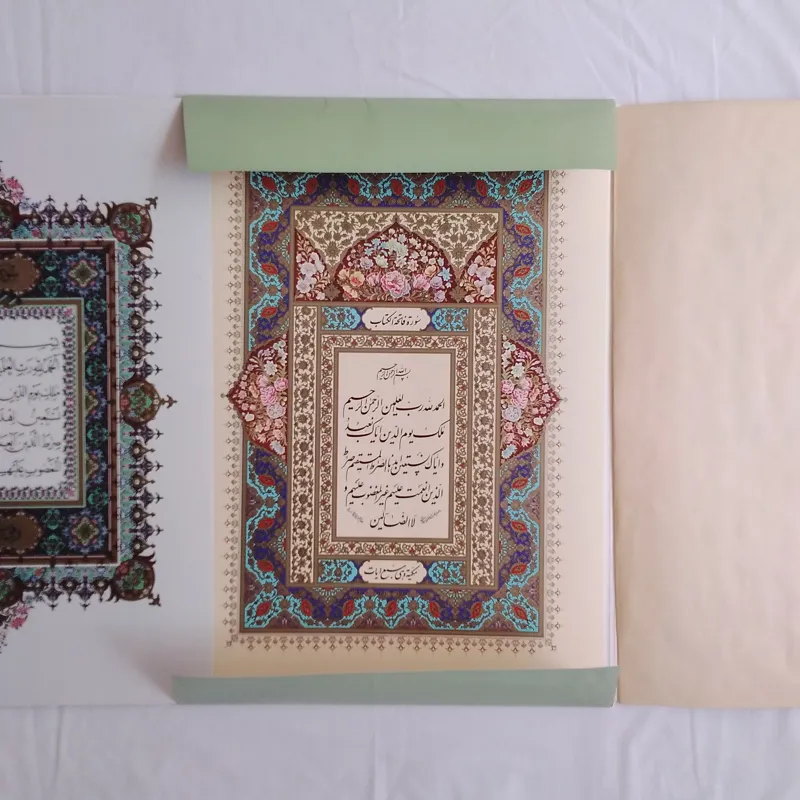 سورة فاتحة الكتاب
بسم الله الرحمن الرحيم
الحمد لله رب العلمين الرحمن الرحيم
ملك يوم الدين اياك نعبد
و اياك نستعين اهدنا الصراط المستقيم صراط
الذين انعمت عليهم غير المغضوب عليهم و
لا الضالين
مكية و هي سبع ايات
الحمد لله رب
ملك يوم الدين
نستعين
صراط الذين
المغضوب عليهم